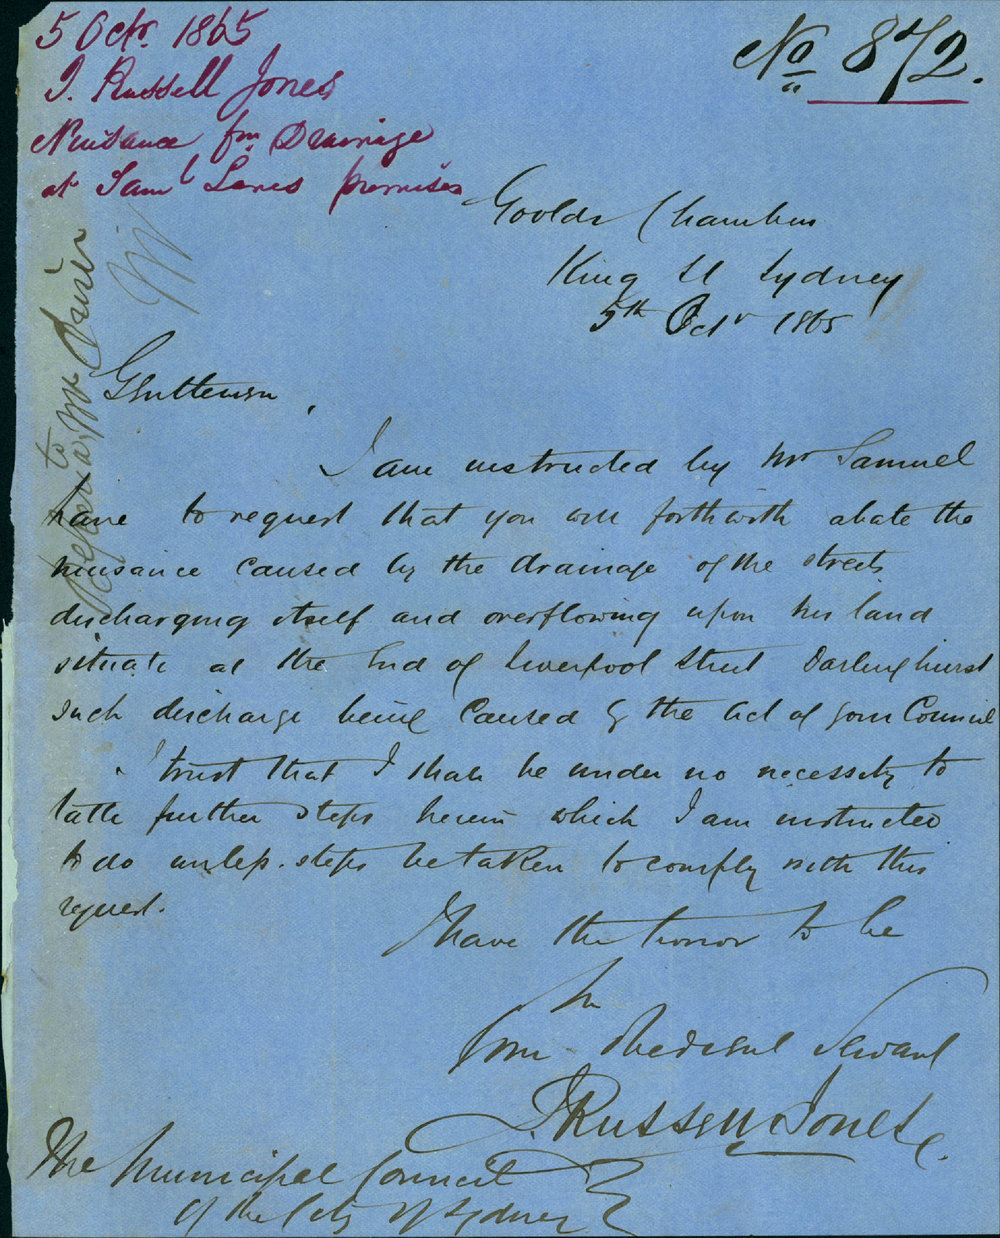 5 Octr. 1865
J. Russell Jones
Nuisance fm Drainage
at Saml Lanes premises
No 872.
Goolds Chambers
King St Sydney
5th Octr 1865
Gentlemen,
I am instructed by Mr Samuel
Lane to request that you will forthwith abate the
nuisance caused by the drainage of the streets
discharging itself and overflowing upon his land
situate at the End of Liverpool Street Darlinghurst
such discharge being caused by the act of your Council
I trust that I shall be under no necessity to
take further steps herein which I am instructed
to do unless steps be taken to comply with this
request.
I have the honor to be
Your Obedient Servant
J. Russell Jones
The Municipal Council
of the City of Sydney
to
Mr